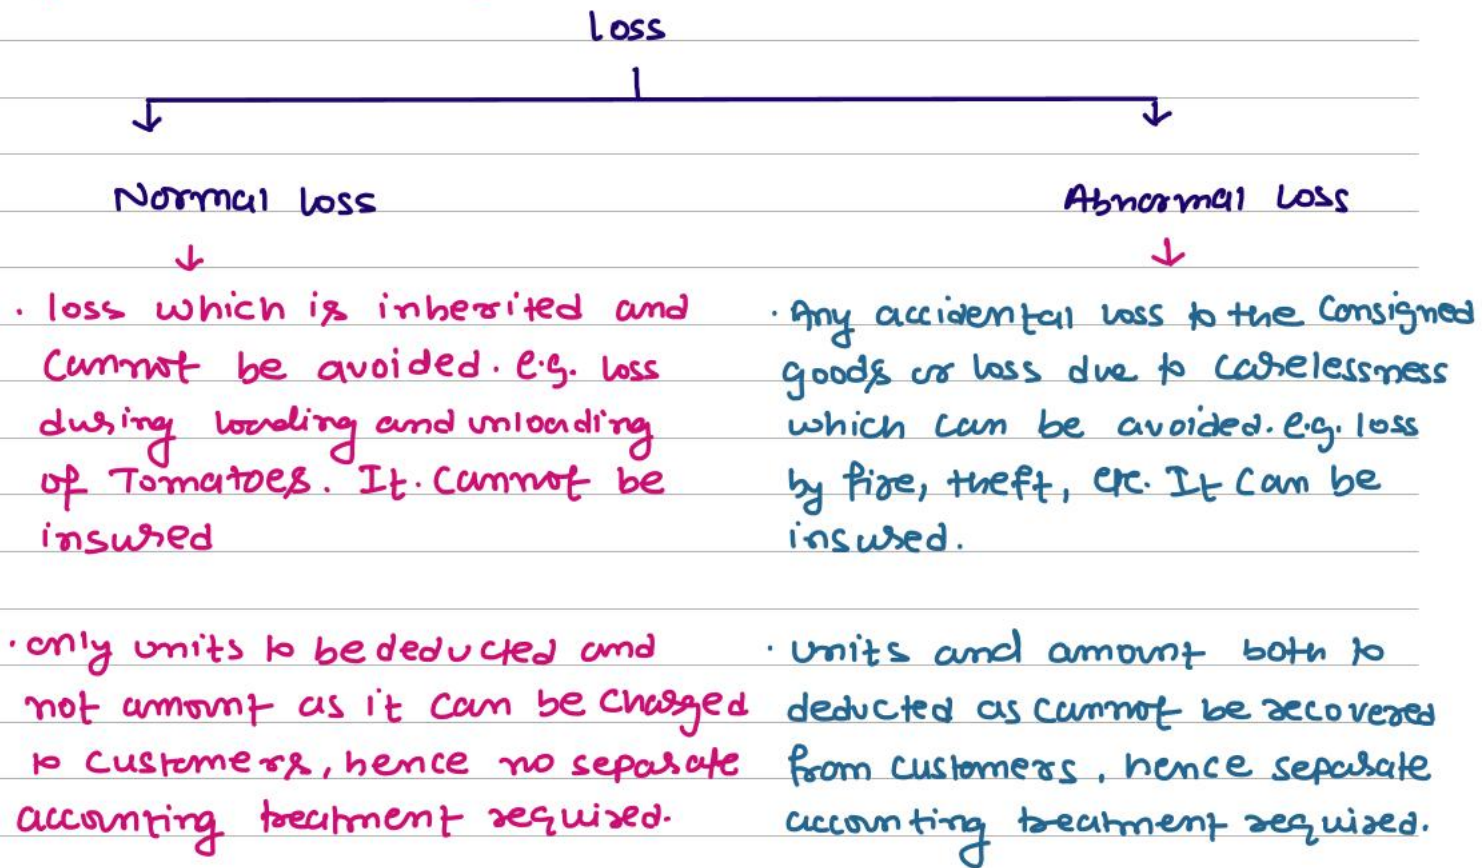 Loss
Normal loss
Abnormal Loss
· loss which is inherited and
cannot be avoided. e.g. loss
during loading and unloading
of Tomatoes. It. cannot be
insured
· only units to be deducted and
not amount as it can be charged
to customers, hence no separate
accounting treatment required.
· Any accidental loss to the Consigned
goods or loss due to carelessness
which can be avoided. e.g. loss
by fire, theft, etc. It can be
insured.
· units and amount both to
deducted as cannot be recovered
from customers, hence separate
accounting treatment required.